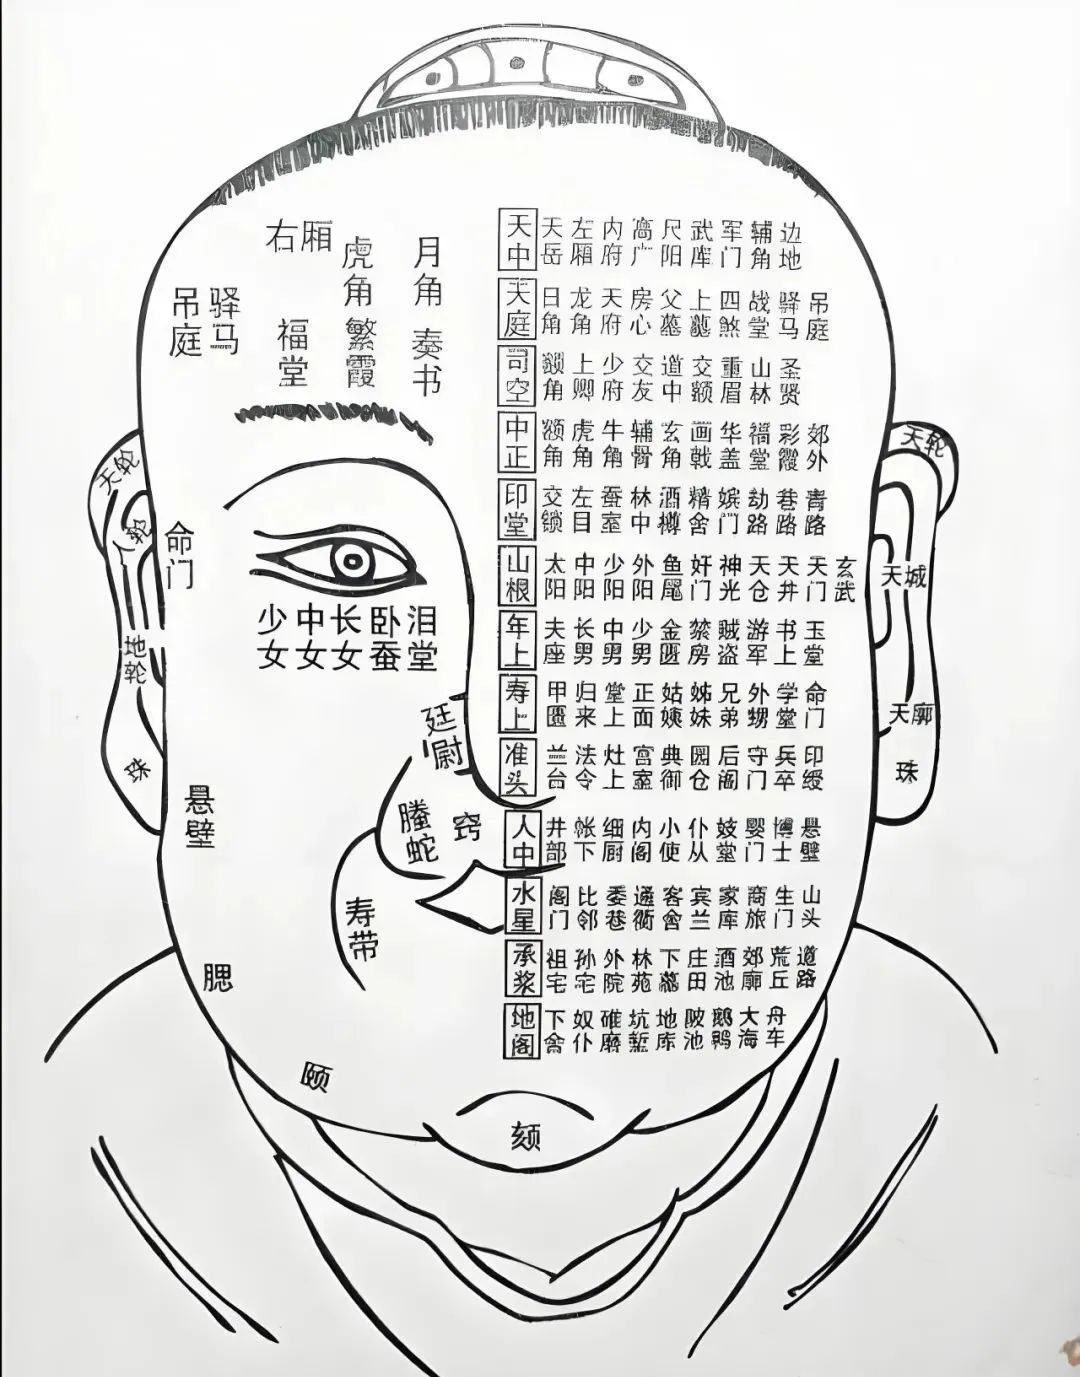 右厢
虎角
月角
吊庭
驿马
福堂
繁霞
奏书
天轮
人轮
命门
地轮
珠
少女 中女 长女 卧蚕 泪堂
廷尉
螣蛇
窍
悬壁
寿带
腮
颐
颏
天中 天岳 左厢 内府 高广 尺阳 武库 军门 辅角 边地
天庭 日角 龙角 天府 房心 父墓 上墓 四煞 战堂 驿马 吊庭
司空 额角 上卿 少府 交友 道中 交额 重眉 山林 圣贤
中正 额角 虎角 牛角 辅骨 玄角 画戟 华盖 福堂 彩霞 郊外
印堂 交锁 左目 蚕室 林中 酒樽 精舍 嫔门 劫路 巷路 青路
山根 太阳 中阳 少阳 外阳 鱼尾 奸门 神光 天仓 天井 天门 玄武
年上 夫座 长男 中男 少男 金匮 禁房 贼盗 游军 书上 玉堂
寿上 甲匮 归来 堂上 正面 姑姨 姊妹 兄弟 外甥 学堂 命门
准头 兰台 法令 灶上 宫室 典御 园仓 后阁 守门 兵卒 印绶
人中 井部 帐下 细厨 内阁 小使 仆从 妓堂 婴门 博士 悬壁
水星 阁门 比邻 委巷 通衢 客舍 宾兰 家库 商旅 生门 山头
承浆 祖宅 孙宅 外院 林苑 下墓 庄田 酒池 郊廓 荒丘 道路
地阁 下舍 奴仆 碓磨 坑堑 地库 陂池 鹅鸭 大海 舟车
天轮
天城
天廓
珠